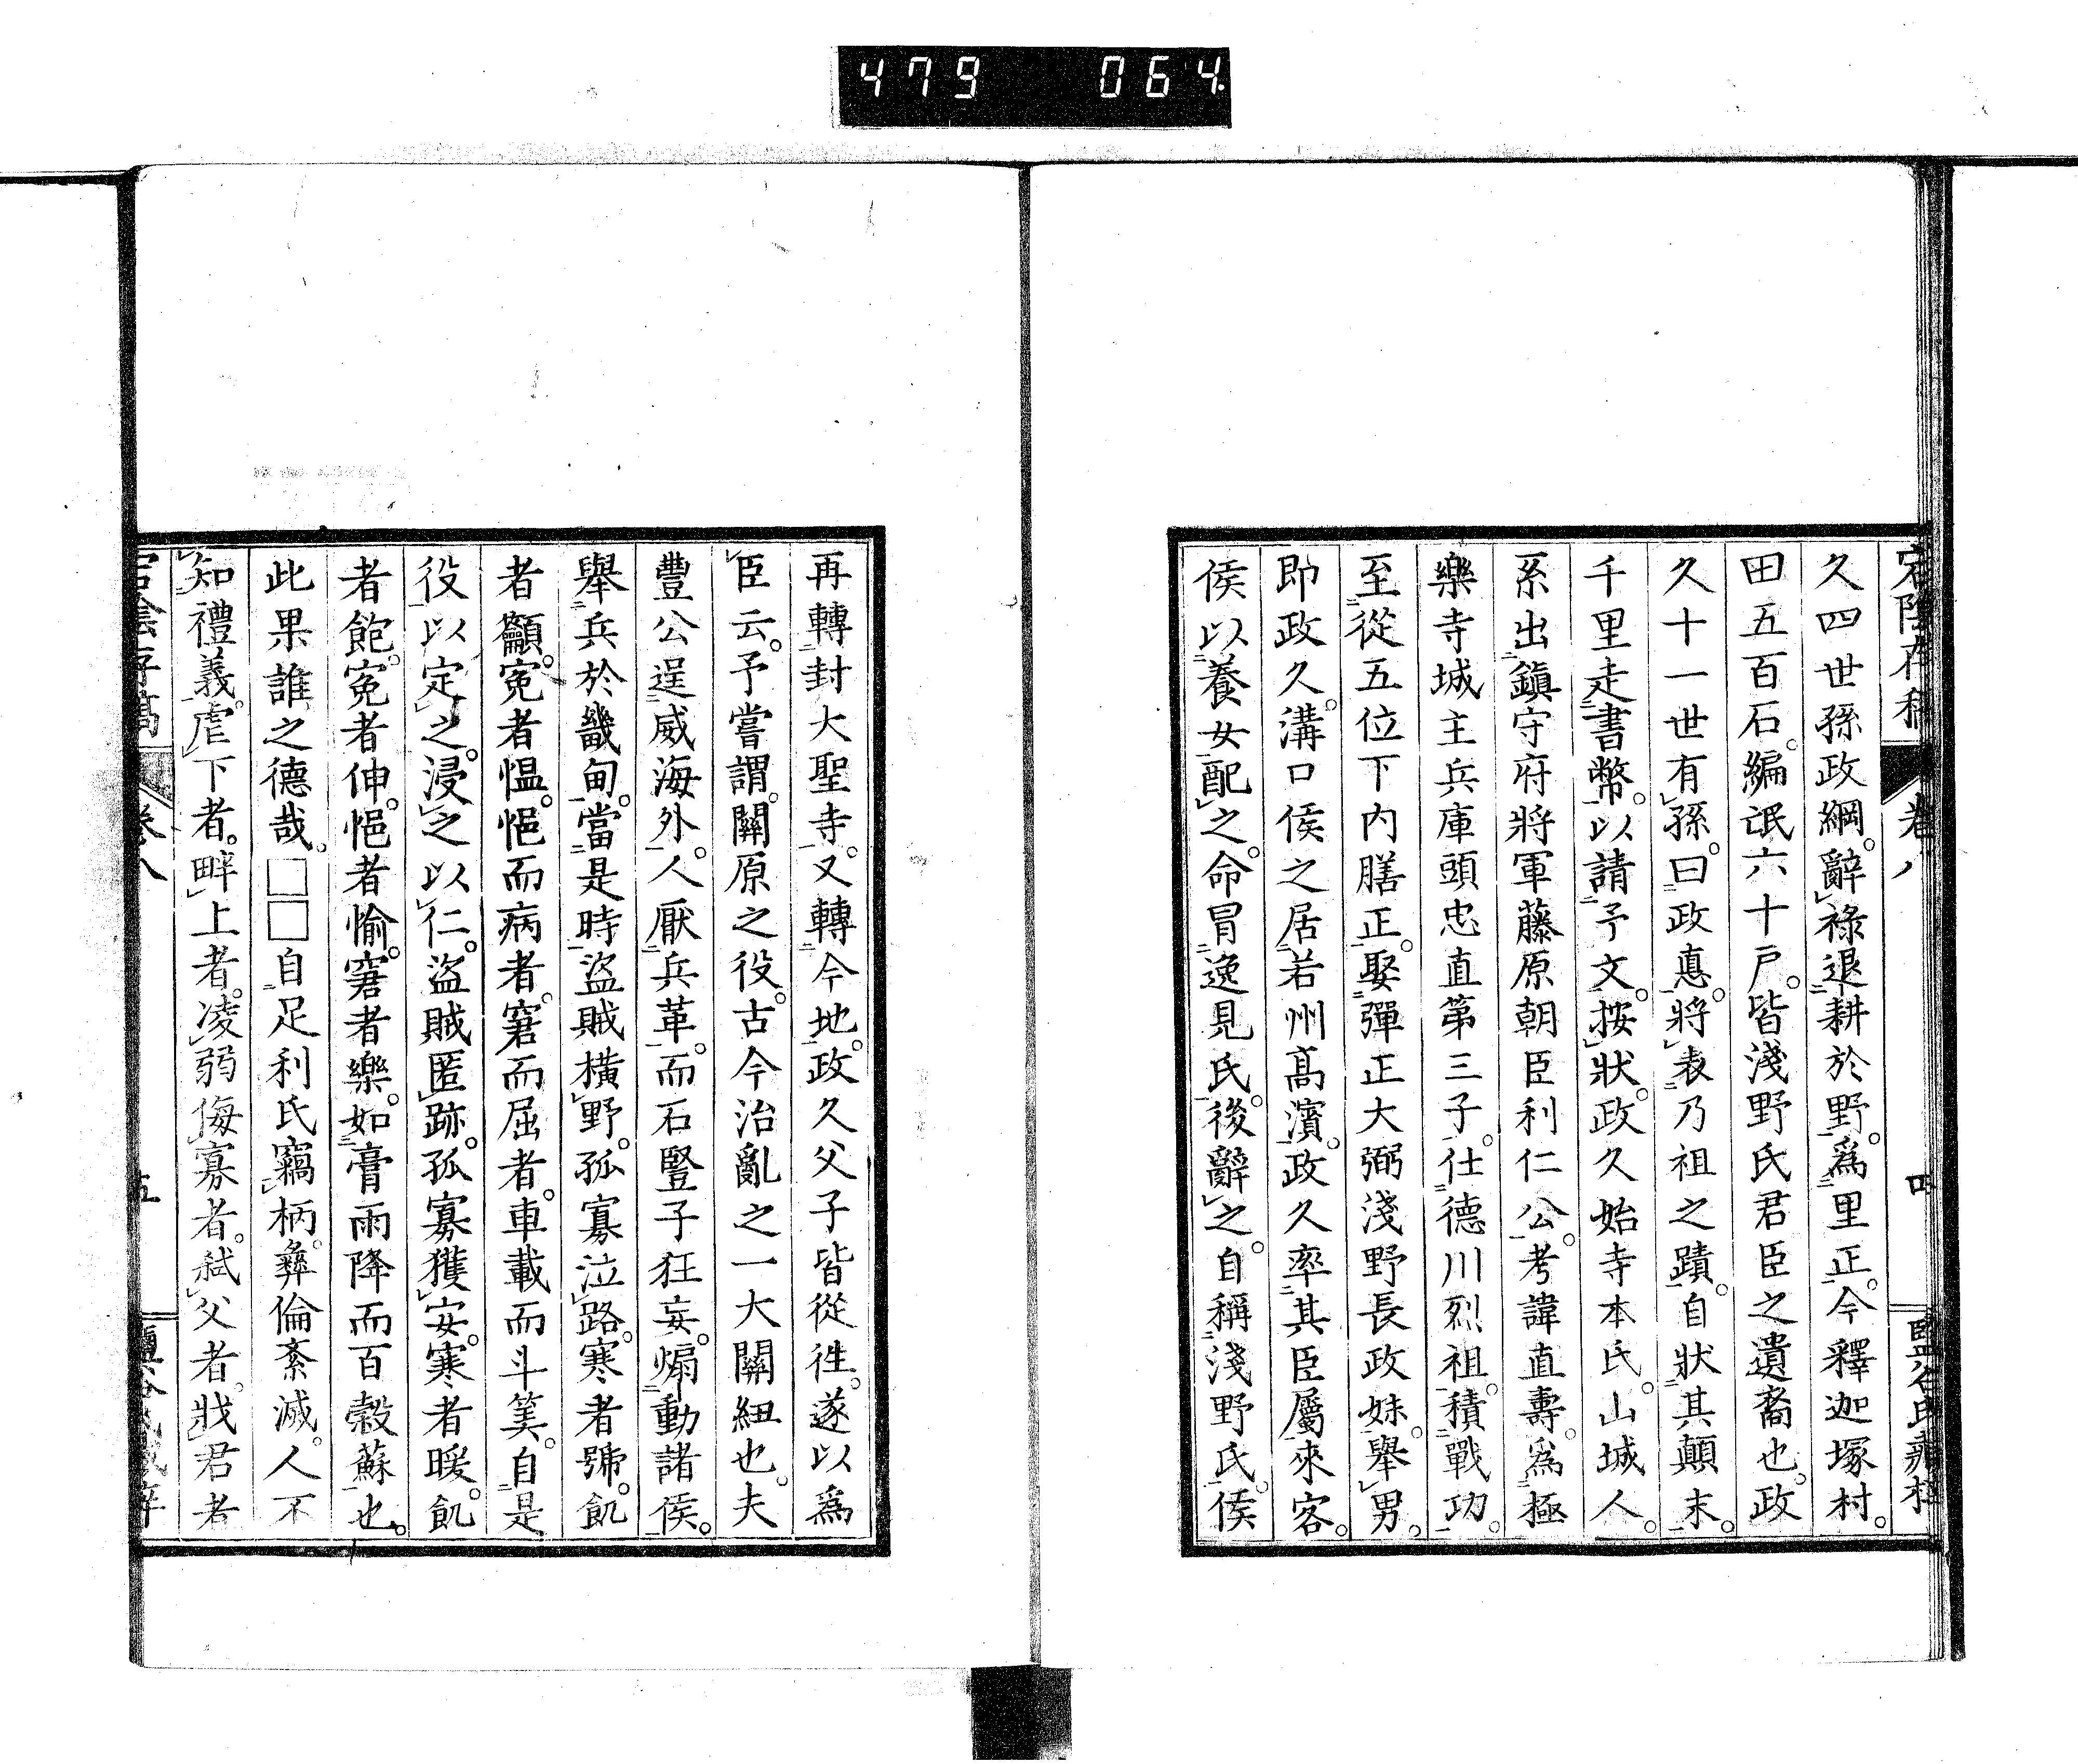 479 064
久四世孫政綱。辭祿退耕於野。爲里正。今釋迦塚村。
田五百石。編氓六十戶。皆淺野氏君臣之遺裔也。政
久十一世有孫。曰政惪。將表乃祖之蹟。自狀其顛末。
千里走書幣。以請予文。按狀。政久始寺本氏。山城人。
系出鎭守府將軍藤原朝臣利仁公。考諱直壽。爲極
樂寺城主兵庫頭忠直第三子。仕德川烈祖。積戰功。
至從五位下內膳正。娶彈正大弼淺野長政妹。舉男。
即政久。溝口侯之居若州高濱。政久率其臣屬來客。
侯以養女配之。命冒逸見氏。後辭之。自稱淺野氏。侯
卷八
四
再轉封大聖寺。又轉今地。政久父子皆從徃。遂以爲
臣云。予嘗謂。關原之役。古今治亂之一大關紐也。夫
豐公逞威海外。人厭兵革。而石豎子狂妄。煽動諸侯。
舉兵於畿甸。當是時盜賊橫野。孤寡泣路。寒者號。飢
者籲。冤者慍。悒而病者。窘而屈者。車載而斗筭。自是
役以定之。浸之以仁。盜賊匿跡。孤寡獲安。寒者暖。飢
者飽。冤者伸。悒者愉。窘者樂。如膏雨降而百穀蘇也。
此果誰之德哉。□□自足利氏竊柄。彝倫紊滅。人不
知禮義。虐下者。畔上者。凌弱侮寡者。弑父者。戕君者